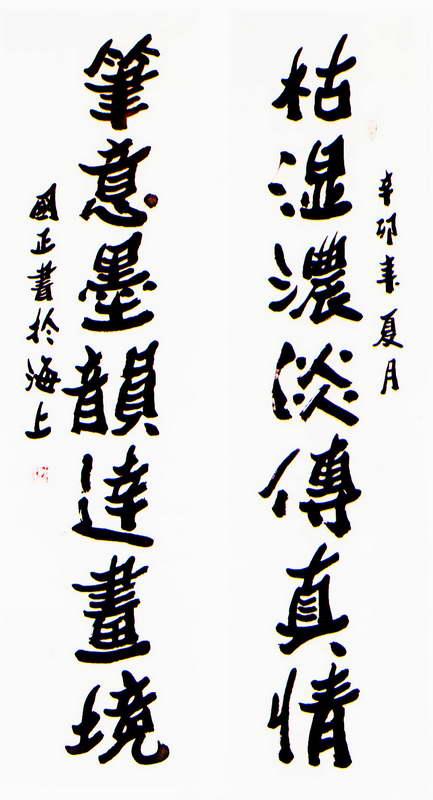 辛卯年夏月
枯湿濃淡傳真情
筆意墨韻達畫境
國正書於海上